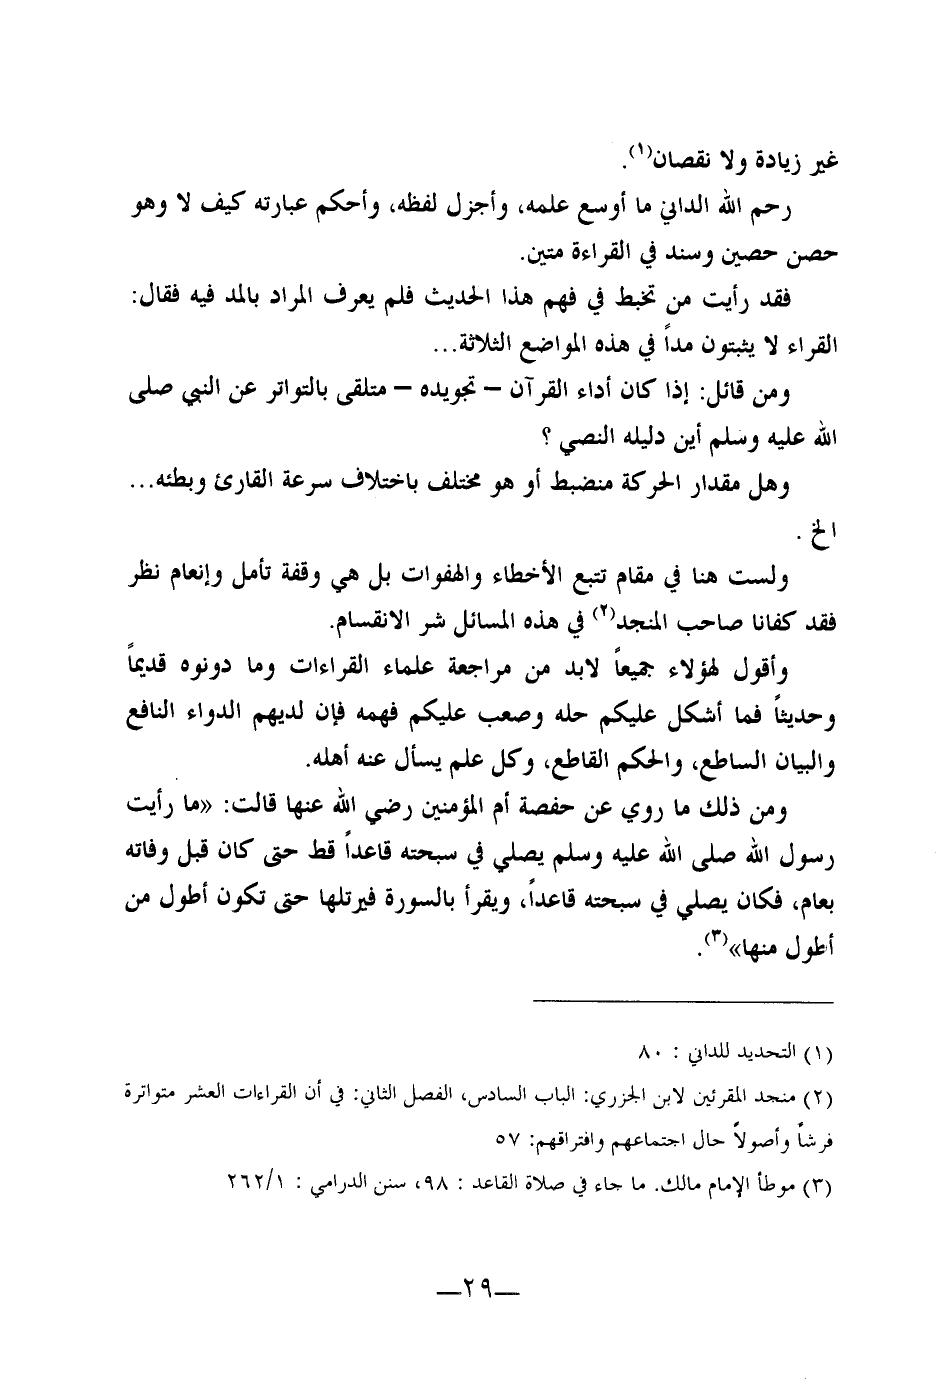 غير زيادة ولا نقصان(١).
رحم الله الداني ما أوسع علمه، وأجزل لفظه، وأحكم عبارته كيف لا وهو
حصن حصين وسند في القراءة متين.
فقد رأيت من تخبط في فهم هذا الحديث فلم يعرف المراد بالمد فيه فقال:
القراء لا يثبتون مداً في هذه المواضع الثلاثة...
ومن قائل: إذا كان أداء القرآن – تجويده – متلقى بالتواتر عن النبي صلى
الله عليه وسلم أين دليله النصي ؟
وهل مقدار الحركة منضبط أو هو مختلف باختلاف سرعة القارئ وبطئه...
الخ .
ولست هنا في مقام تتبع الأخطاء والهفوات بل هي وقفة تأمل وإنعام نظر
فقد كفانا صاحب المنجد(٢) في هذه المسائل شر الانقسام.
وأقول لهؤلاء جميعاً لابد من مراجعة علماء القراءات وما دونوه قديماً
وحديثاً فما أشكل عليكم حله وصعب عليكم فهمه فإن لديهم الدواء النافع
والبيان الساطع، والحكم القاطع، وكل علم يسأل عنه أهله.
ومن ذلك ما روي عن حفصة أم المؤمنين رضي الله عنها قالت: «ما رأيت
رسول الله صلى الله عليه وسلم يصلي في سبحته قاعداً قط حتى كان قبل وفاته
بعام، فكان يصلي في سبحته قاعداً، ويقرأ بالسورة فيرتلها حتى تكون أطول من
أطول منها»(٣).
(١) التحديد للداني : ٨٠
(٢) منجد المقرئين لابن الجزري: الباب السادس، الفصل الثاني: في أن القراءات العشر متواترة
فرشاً وأصولاً حال اجتماعهم وافتراقهم: ٥٧
(٣) موطأ الإمام مالك. ما جاء في صلاة القاعد : ٩٨، سنن الدرامي : ٢٦٢/١
—٢٩—